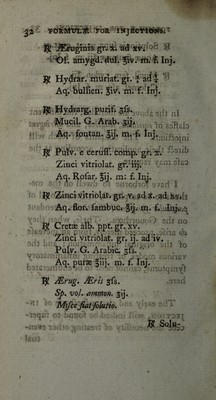 32 FORMULÆ FOR INJECTIONS.
℞ Æruginis gr. x. ad xv.
Ol. amygd. dul. ℥iv. m. f. Inj.
℞ Hydrar. muriat. gr. ¼ ad ½
Aq. bullien. ℥iv. m. f. Inj.
℞ Hydrarg. purif. ʒſs.
Mucil. G. Arab. ʒij.
Aq. fontan. ℥ij. m. f. Inj.
℞ Pulv. e ceruſſ. comp. gr. x.
Zinci vitriolat. gr. ij.
Aq. Roſar. ℥ij. m: f. Inj.
℞ Zinci vitriolat. gr. v. ad x. ad xv.
Aq. flor. ſambuc. ℥ij. m. f. Inj.
℞ Cretæ alb. ppt. gr. xv.
Zinci vitriolat. gr. ij. ad iv.
Pulv. G. Arabic. ʒſs.
Aq. puræ ℥iij. m. f. Inj.
℞ Ærug. Æris ʒſs.
Sp. vol. ammon. ʒij.
Miſce fiat ſolutio.
℞ Solu-